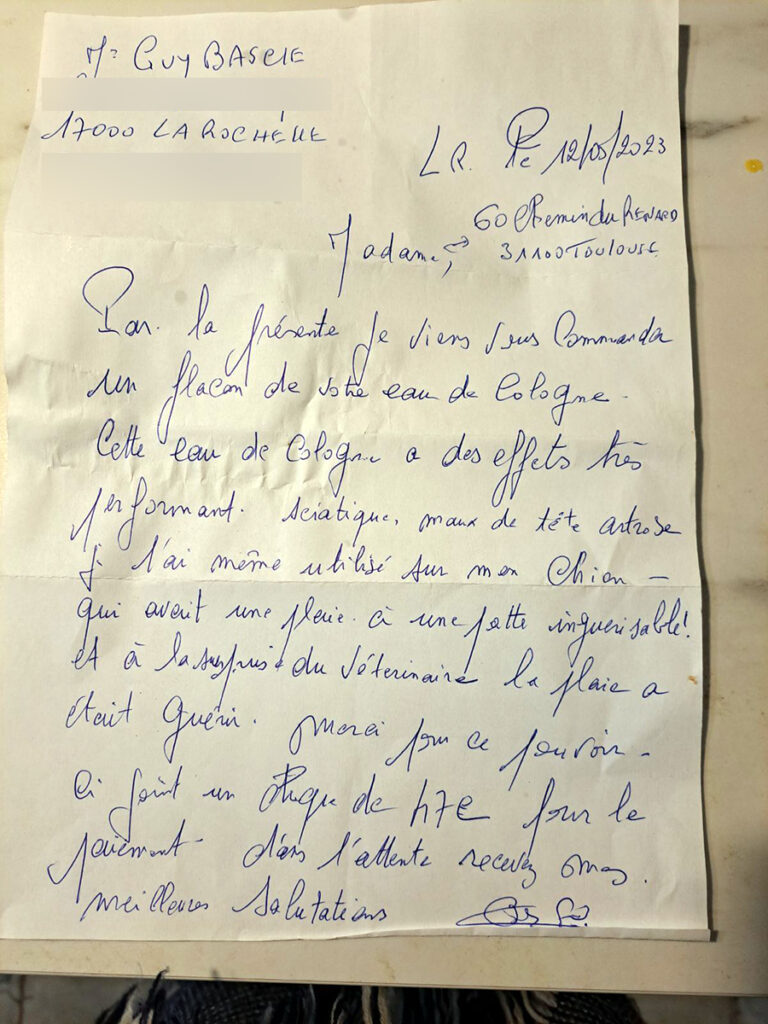 Mr GUY BASCLE
17000 LA ROCHÉLLE
LR. le 12/05/2023
60 Chemin du RENARD
31100 TOULOUSE
Madame,
Par la présente je viens vous Commander
un flacon de votre eau de Cologne.
Cette eau de Cologne a des effets très
performant. Sciatique, maux de tête artrose
je l'ai même utilisé sur mon Chien -
qui avait une plaie à une patte inguerisable!
et à la surprise du véterinaire la plaie a
était Guérir. Merci pour ce pouvoir -
Ci joint un Chèque de 47€ pour le
paiement - dans l'attente recevez mes
meilleures Salutations